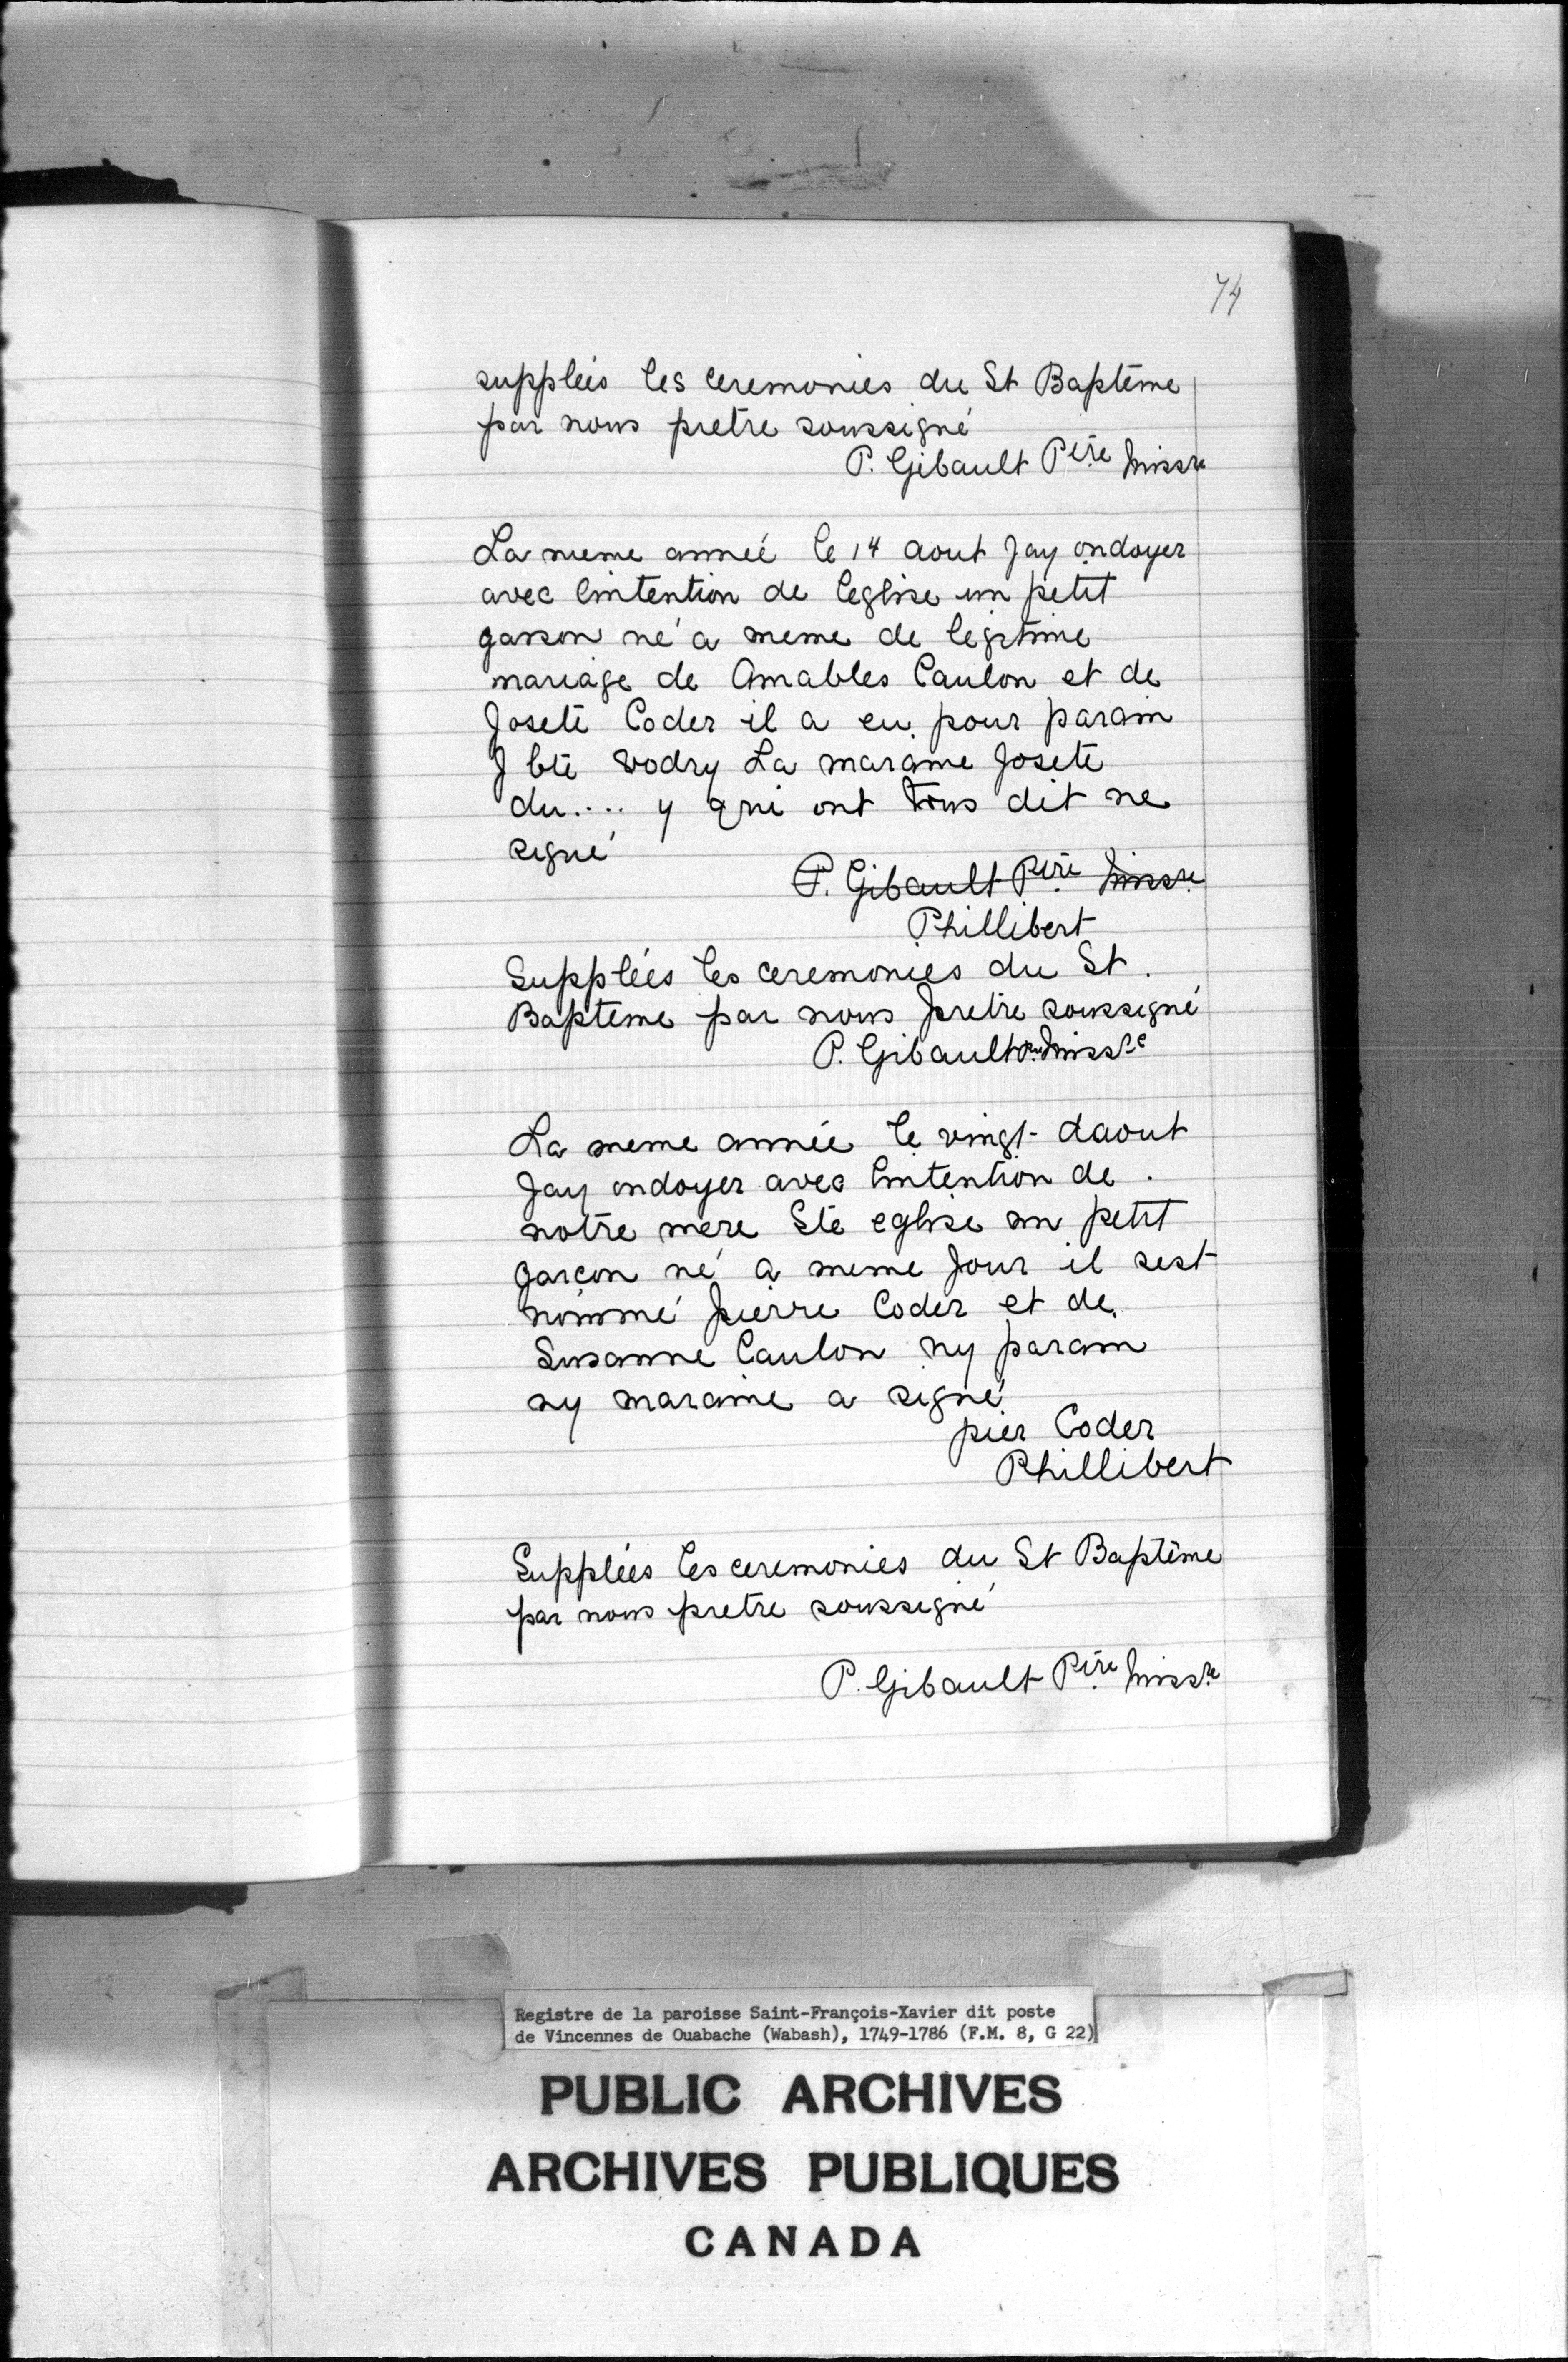 74
suppléés les ceremonies du St Baptême
par nous pretre soussigné
P. Gibault Ptre Missre
La meme année le 14 aout Jay ondoyer
avec lintention de leglise un petit
garson né a meme de legitime
mariage de Amables Caulon et de
Josete Coder il a eu pour parain
J bte Vodry La maraine Josete
du.... y qui ont tous dit ne
signé
P. Gibault Ptre Missre
Phillibert
Suppléés les ceremonies du St.
Bapteme par nous pretre soussigné
P. Gibault Ptre Missre
La meme année le vingt daout
Jay ondoyer avec lintention de
notre mere Ste eglise un petit
garçon né a meme Jour il sest
nommé pierre Coder et de
Susanne Caulon ny parain
ny maraine a signé
pier Coder
Phillibert
Suppléés les ceremonies du St Baptême
par nous pretre soussigné
P. Gibault Ptre Missre
Registre de la paroisse Saint-François-Xavier dit poste
de Vincennes de Ouabache (Wabash), 1749-1786 (F.M. 8, G 22)
PUBLIC ARCHIVES
ARCHIVES PUBLIQUES
CANADA